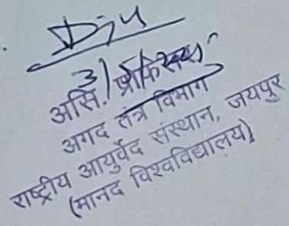 असि. प्रोफेसर
अगद तंत्र विभाग
राष्ट्रीय आयुर्वेद संस्थान, जयपुर
(मानद विश्वविद्यालय)